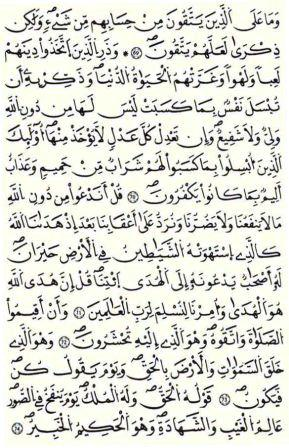 وَمَا عَلَى اَ۬لذِينَ يَتَّقُونَ مِنْ حِسَابِهِم مِّن شَےْءٖ وَلَٰكِن
ذِكْر۪ىٰ لَعَلَّهُمْ يَتَّقُونَ وَذَرِ اِ۬لذِينَ اَ۪تَّخَذُواْ دِينَهُمْ
لَعِباٗ وَلَهْواٗ وَغَرَّتْهُمُ اُ۬لْحَيَوٰةُ اُ۬لدُّنْي۪ا وَذَكِّرْ بِهِۦٓ أَن
تُبْسَلَ نَفْسُۢ بِمَا كَسَبَتْ لَيْسَ لَهَا مِن دُونِ اِ۬للَّهِ
وَلِيّٞ وَلَا شَفِيعٞ وَإِن تَعْدِلْ كُلَّ عَدْلٖ لَّا يُوخَذْ مِنْهَآ أُوْلَٰٓئِكَ
اَ۬لذِينَ أُبْسِلُواْ بِمَا كَسَبُواْ لَهُمْ شَرَابٞ مِّنْ حَمِيمٖ وَعَذَابٌ
اَلِيمُۢ بِمَا كَانُواْ يَكْفُرُونَ قُلَ اَنَدْعُواْ مِن دُونِ اِ۬للَّهِ
مَا لَا يَنفَعُنَا وَلَا يَضُرُّنَا وَنُرَدُّ عَلَىٰٓ أَعْقَابِنَا بَعْدَ إِذْ هَدَىٰنَا اَ۬للَّهُ
كَالذِے اِ۪سْتَهْوَتْهُ اُ۬لشَّيَٰطِينُ فِے اِ۬لَارْضِ حَيْرَانَ
لَهُۥٓ أَصْحَٰبٞ يَدْعُونَهُۥٓ إِلَى اَ۬لْهُدَى اَ۪يتِنَا قُلِ اِنَّ هُدَى اَ۬للَّهِ
هُوَ اَ۬لْهُدَىٰ وَأُمِرْنَا لِنُسْلِمَ لِرَبِّ اِ۬لْعَٰلَمِينَ وَأَنَ اَقِيمُواْ
اُ۬لصَّلَوٰةَ وَاتَّقُوهُ وَهُوَ اَ۬لذِےٓ إِلَيْهِ تُحْشَرُونَ وَهُوَ اَ۬لذِے
خَلَقَ اَ۬لسَّمَٰوَٰتِ وَالَارْضَ بِالْحَقِّ وَيَوْمَ يَقُولُ كُن
فَيَكُونُ قَوْلُهُ اُ۬لْحَقُّ وَلَهُ اُ۬لْمُلْكُ يَوْمَ يُنفَخُ فِے اِ۬لصُّورِ
عَٰلِمُ اُ۬لْغَيْبِ وَالشَّهَٰدَةِ وَهُوَ اَ۬لْحَكِيمُ اُ۬لْخَبِيرُ